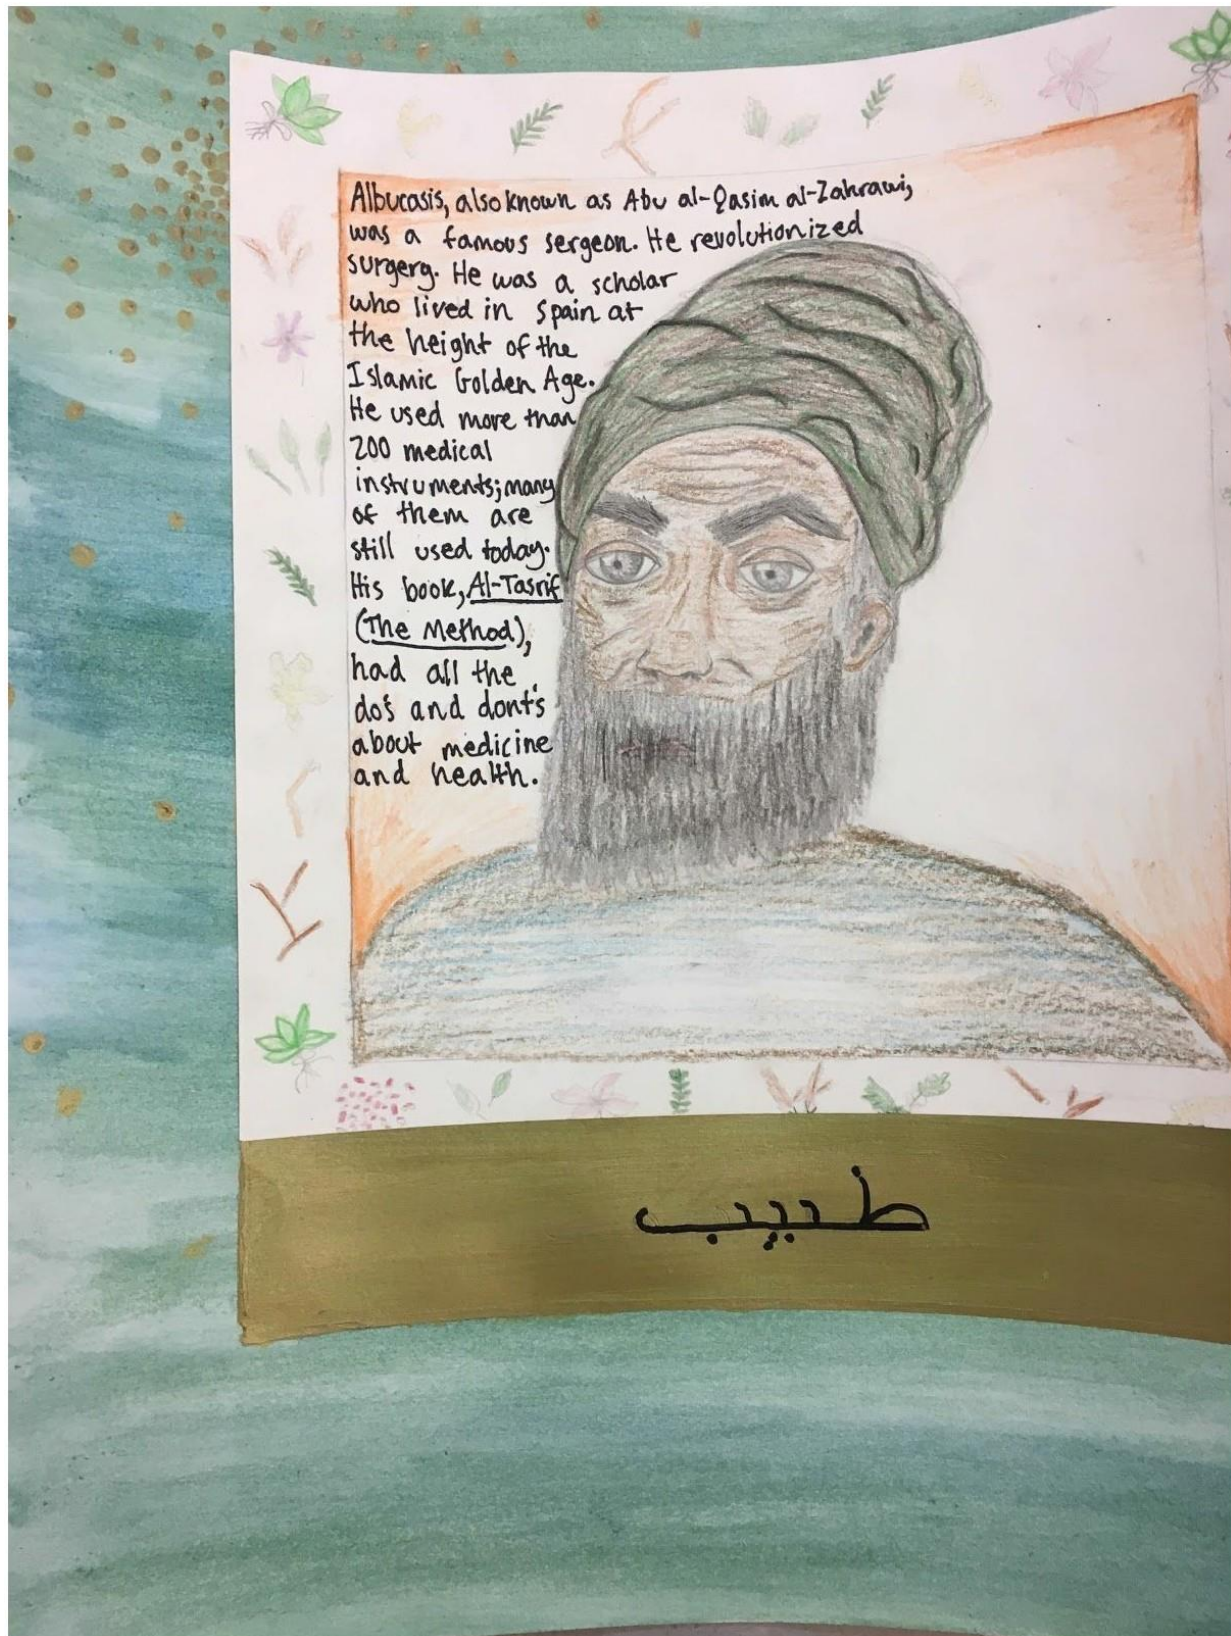 Albucasis, also known as Abu al-Qasim al-Zahrawi,
was a famous sergeon. He revolutionized
surgerg. He was a scholar
who lived in spain at
the height of the
Islamic Golden Age.
He used more than
200 medical
instruments; many
of them are
still used today.
His book, Al-Tasrif
(The Method),
had all the
do's and dont's
about medicine
and health.
طبيب